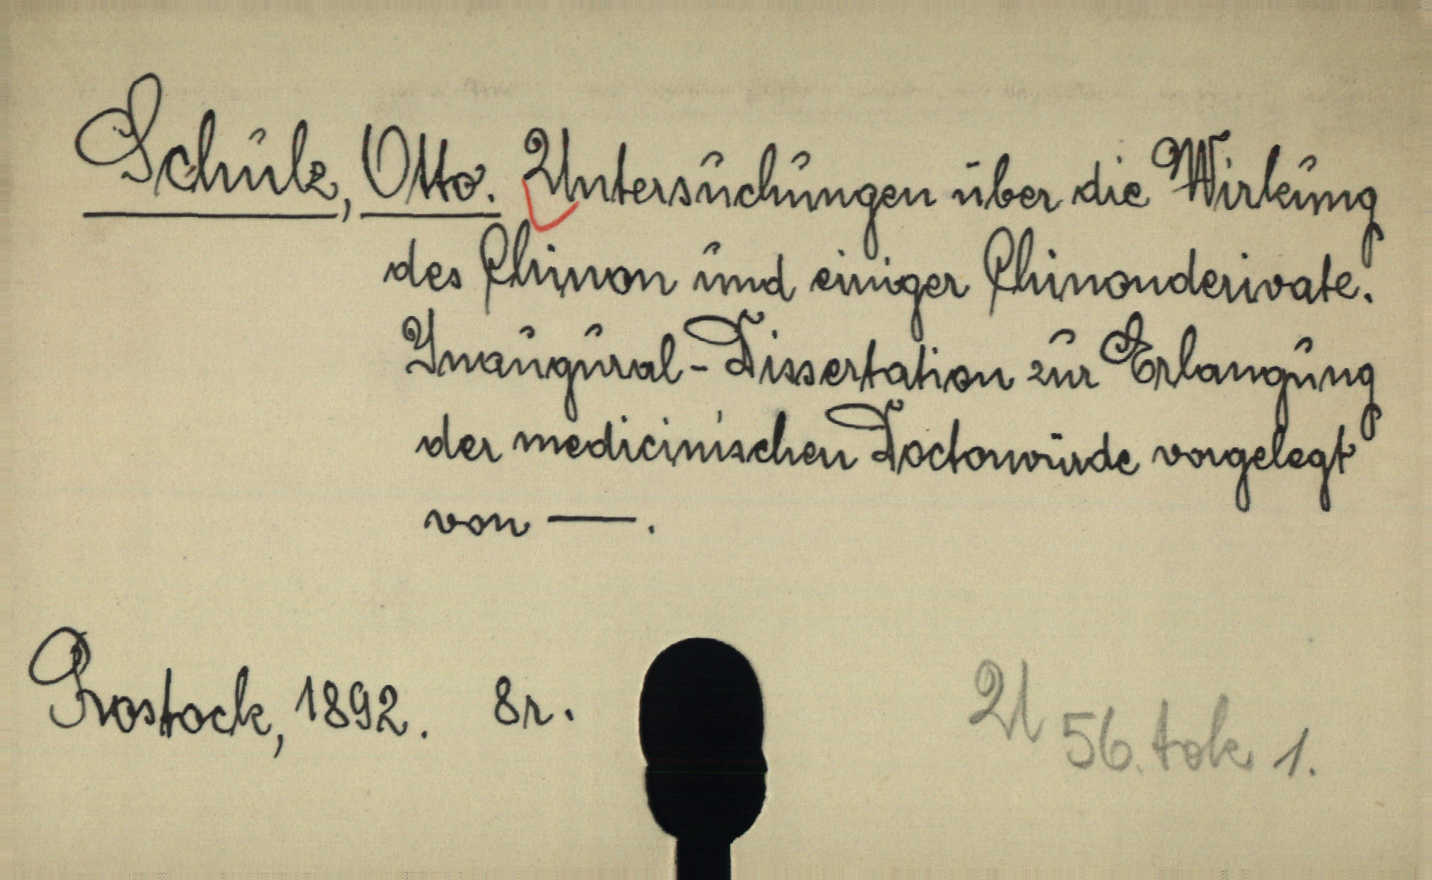 Schulz, Otto. Untersuchungen über die Wirkung
des Chinon und einiger Chinonderivate.
Inaugural-Dissertation zur Erlangung
der medicinischen Doctorwürde vorgelegt
von —.
Rostock, 1892. 8r.
U 56. tok 1.